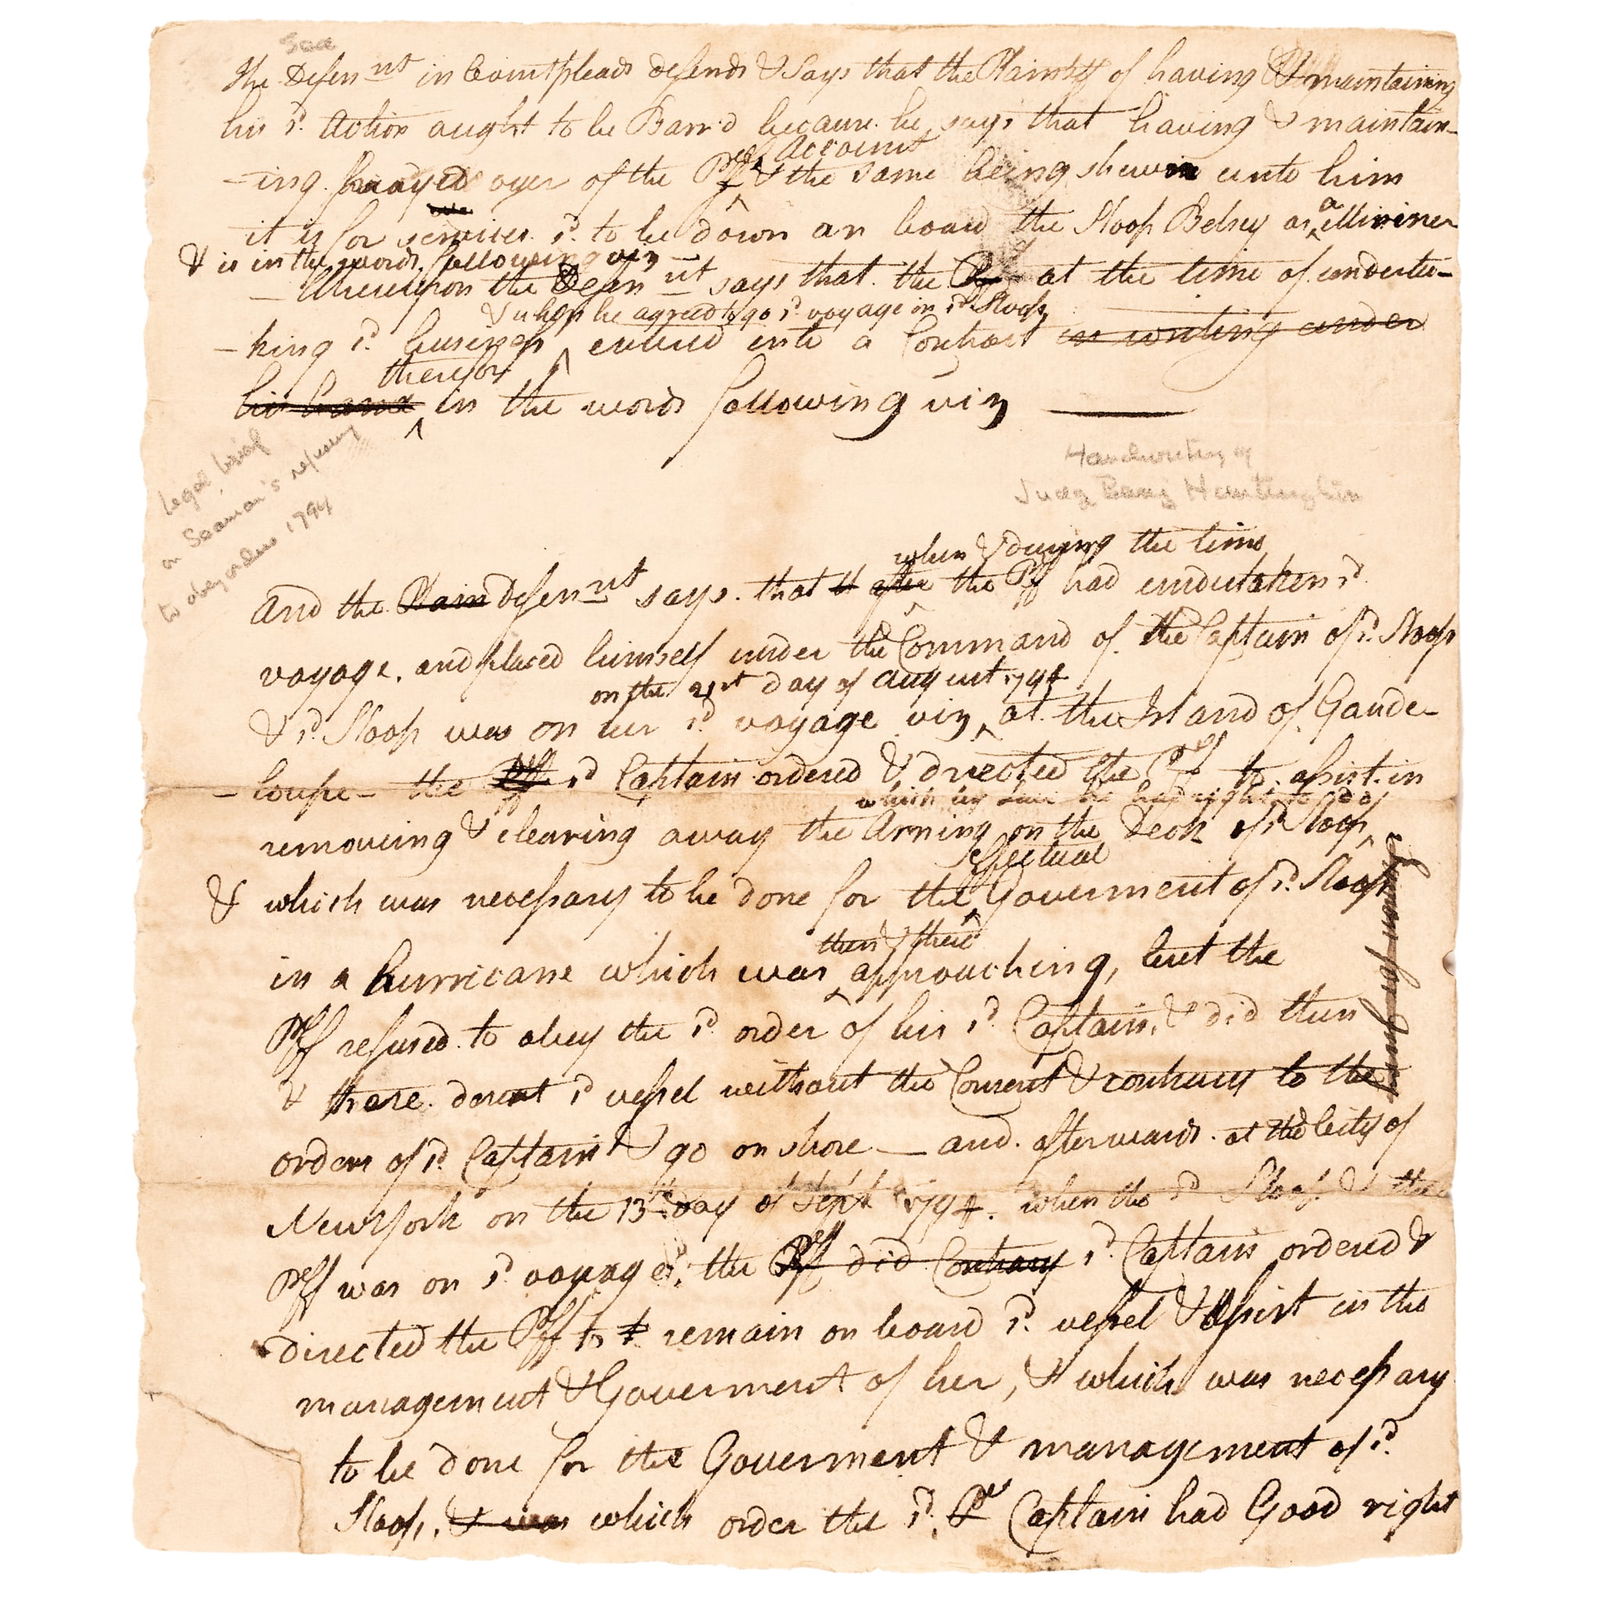 The Defennt in Court pleads defends & Says that the Plaintiff of having & maintaining
his sd. Action aught to be Barrd because he says that having & maintain-
-ing prayed oyer of the Plffs Account & the same being shewn unto him
it is for services sd. to be down on board the Sloop Betsey as a Mariner
& is in the words following viz
- Whereupon the Defennt says that the Plf at the time of underta-
& when he agreed to go sd voyage in sd. Sloop
-king sd. business entered into a Contract in writing under
therefor
his hand in the words following viz
Handwriting of
Judg Benj Huntington
Legal brief
on Seaman's refusing
to obey orders 1794
when & during the time
and the Plain Defennt says that after the Plff had undertaken sd.
voyage, and placed himself under the Command of the Captain of sd. Sloop
on the 21st day of August 1794
& sd. Sloop was on her sd voyage viz at the Island of Gaude-
-loupe - the Plff sd Captain ordered & directed the Plff to assist in
which he had right to do
removing & clearing away the Arning on the Deck of sd Sloop
effectual
& which was necessary to be done for the Goverment of sd. Sloop
then & there
in a hurricane which was approaching, but the
Plff refused to obey the sd order of his sd Captain, & did then
& there depart sd vessel without the Consent & contrary to the
orders of sd. Captain & go on shore - and afterwards at the City of
New York on the 13th Day of Sept 1794. when the sd Sloop & the
Plff was on sd voyage sd. the Plff did Contrary sd. Captain ordered &
directed the Plff to remain on board sd. vessel & Assist in the
management & Goverment of her, & which was necessary
to be done for the Goverment & management of sd.
Sloop, & was which order the sd. Captain had Good right